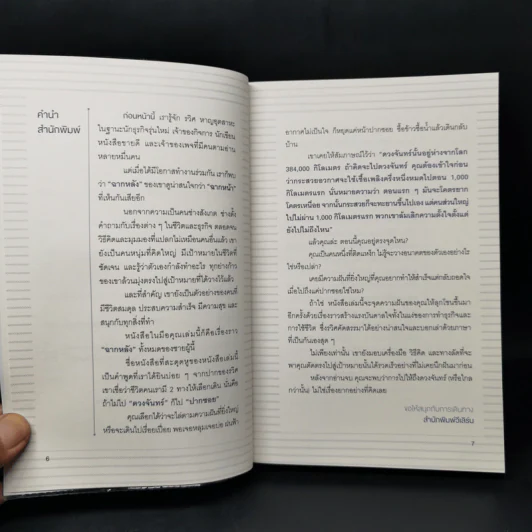 คำนำ
สำนักพิมพ์
ก่อนหน้านี้ เรารู้จัก รวิศ หาญอุตสาหะ
ในฐานะนักธุรกิจรุ่นใหม่ เจ้าของกิจการ นักเขียน
หนังสือขายดี และเจ้าของเพจที่มีคนตามอ่าน
หลายหมื่นคน
แต่เมื่อได้มีโอกาสทำงานร่วมกัน เราก็พบ
ว่า "ฉากหลัง" ของเขาดูน่าสนใจกว่า "ฉากหน้า"
ที่เห็นกันเสียอีก
นอกจากความเป็นคนช่างสังเกต ช่างตั้ง
คำถามกับเรื่องต่าง ๆ ในชีวิตและธุรกิจ ตลอดจน
วิธีคิดและมุมมองที่แปลกไม่เหมือนคนอื่นแล้ว เขา
ยังเป็นคนหนุ่มที่คิดใหญ่ มีเป้าหมายในชีวิตที่
ชัดเจน และรู้ว่าตัวเองกำลังทำอะไร ทุกย่างก้าว
ของเขาล้วนมุ่งตรงไปสู่เป้าหมายที่ได้วางไว้แล้ว
และที่สำคัญ เขายังเป็นตัวอย่างของคนที่
มีชีวิตสมดุล ประสบความสำเร็จ มีความสุข และ
สนุกกับทุกสิ่งที่ทำ
หนังสือในมือคุณเล่มนี้ก็คือเรื่องราว
"ฉากหลัง" ทั้งหมดของชายผู้นี้
ชื่อหนังสือที่สะดุดหูของหนังสือเล่มนี้
เป็นคำพูดที่เราได้ยินบ่อย ๆ จากปากของรวิศ
เขาเชื่อว่าชีวิตคนเรามี 2 ทางให้เลือกเดิน นั่นคือ
ถ้าไม่ไป "ดวงจันทร์" ก็ไป "ปากซอย"
คุณเลือกได้ว่าจะไล่ตามความฝันที่ยิ่งใหญ่
หรือจะเดินไปเรื่อยเปื่อย พอเจอหลุมเจอบ่อ ฝนฟ้า
6
อากาศไม่เป็นใจ ก็หยุดแค่หน้าปากซอย ซื้อข้าวซื้อน้ำแล้วเดินกลับ
บ้าน
เขาเคยให้สัมภาษณ์ไว้ว่า "ดวงจันทร์นั้นอยู่ห่างจากโลก
384,000 กิโลเมตร ถ้าคิดจะไปดวงจันทร์ คุณต้องเข้าใจก่อน
ว่ากระสวยอวกาศจะใช้เชื้อเพลิงครึ่งหนึ่งหมดไปตอน 1,000
กิโลเมตรแรก นั่นหมายความว่า ตอนแรก ๆ มันจะโคตรยาก
โคตรเหนื่อย จากนั้นกระสวยก็จะทะยานขึ้นไปเอง แต่คนส่วนใหญ่
ไปไม่ผ่าน 1,000 กิโลเมตรแรก พวกเขาล้มเลิกความตั้งใจตั้งแต่
ยังไปไม่ถึงไหน"
แล้วคุณล่ะ ตอนนี้คุณอยู่ตรงจุดไหน?
คุณเป็นคนหนึ่งที่คิดแหลก ไม่รู้จะวางอนาคตของตัวเองอย่างไร
ใช่หรือเปล่า?
เคยมีความฝันที่ยิ่งใหญ่ที่คุณอยากทำให้สำเร็จแต่กลับถอดใจ
เมื่อไปถึงแค่ปากซอยใช่ไหม?
ถ้าใช่ หนังสือเล่มนี้จะจุดความฝันของคุณให้ลุกโชนขึ้นมา
อีกครั้งด้วยเรื่องราวสร้างแรงบันดาลใจทั้งในแง่ของการทำธุรกิจและ
การใช้ชีวิต ซึ่งรวิศคัดสรรมาได้อย่างน่าสนใจและบอกเล่าด้วยภาษา
ที่เป็นกันเองสุด ๆ
ไม่เพียงเท่านั้น เขายังมอบเครื่องมือ วิธีคิด และทางลัดที่จะ
พาคุณลัดตรงไปสู่เป้าหมายนั้นได้รวดเร็วอย่างที่ไม่เคยนึกฝันมาก่อน
หลังจากอ่านจบ คุณจะพบว่าการไปให้ถึงดวงจันทร์ (หรือไกล
กว่านั้น) ไม่ใช่เรื่องยากอย่างที่คิดเลย
ขอให้สนุกกับการเดินทาง
สำนักพิมพ์วีเลิร์น
7